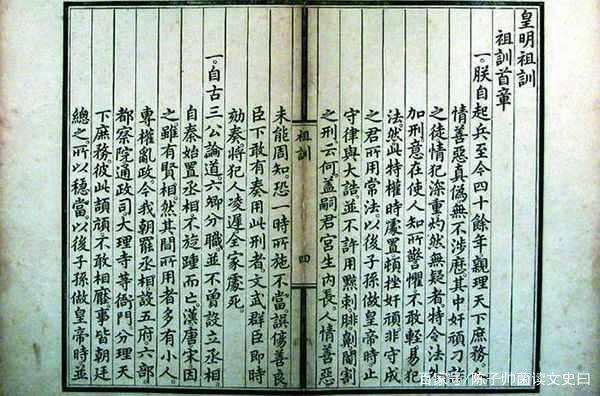 皇明祖訓
祖訓首章
一。朕自起兵至今四十餘年。親理天下庶務。
情善惡真偽。無不涉歷。其中奸頑刁詐
之徒。情犯深重。灼然無疑者。特令法
加刑。意在使人知所警懼。不敢輕易犯
法。然此特權時處置。頓挫奸頑。非守成
之君所用常法。以後子孫做皇帝時。止
守律與大誥。並不許用黥刺腓劓閹割
之刑。云何。蓋嗣君宮生內長。人情善惡
祖訓
四
未能周知。恐一時所施不當。誤傷善良。
臣下敢有奏用此刑者。文武群臣即時
劾奏。將犯人凌遲。全家處死。
一。自古三公論道。六卿分職。並不曾設立丞相。
自秦始置丞相。不旋踵而亡。漢唐宋因
之。雖有賢相。然其間所用者多有小人。
專權亂政。今我朝罷丞相。設五府六部。
都察院。通政司。大理寺等衙門。分理天
下庶務。彼此頡頏。不敢相壓。事皆朝廷
總之。所以穩當。以後子孫做皇帝時。並
百家号/陈子帅菌读文史曰